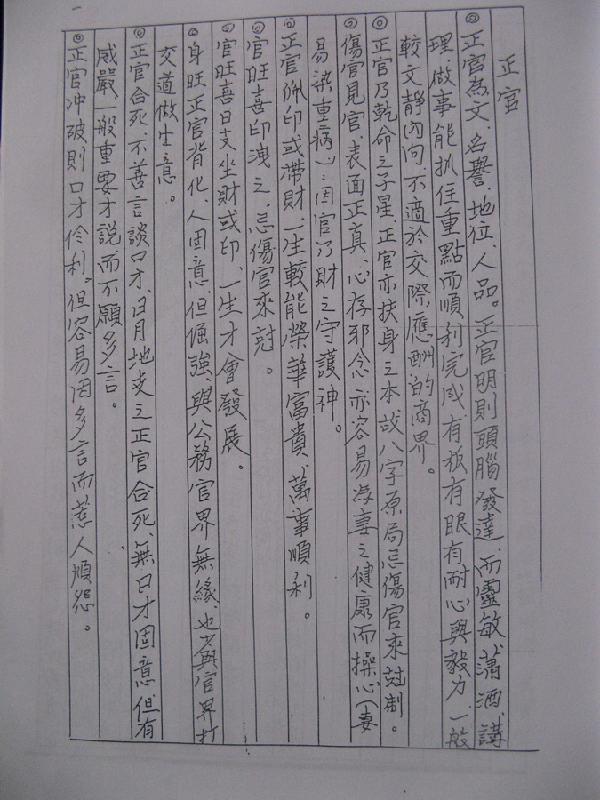 正官
◎正官為文、名譽、地位、人品。正官明則頭腦發達、而靈敏瀟洒、講
理做事能抓住重點而順利完成、有狠有眼有耐心與毅力、一般
較文靜內向、不適於交際應酬的商界。
◎正官乃乾命之子星、正官亦扶身之本故八字原局忌傷官來尅制。
◎傷官見官、表面正真、心存邪念、亦容易為妻之健康而操心(妻
易染重病)：因官乃財之守護神。
◎正官佩印或帶財、一生較能榮華富貴、萬事順利。
◎官旺喜印洩之、忌傷官來尅。
◎官旺喜日支坐財或印、一生才會發展。
◎身旺正官背化、人固意、但倔強、與公務官界無緣、也少與官界打
交道做生意。
◎正官合死、不善言談口才、日月地支之正官合死、無口才固意、但有
威嚴、一般重要才說而不願多言。
◎正官冲破則口才伶利。但容易因多言而惹人煩怨。